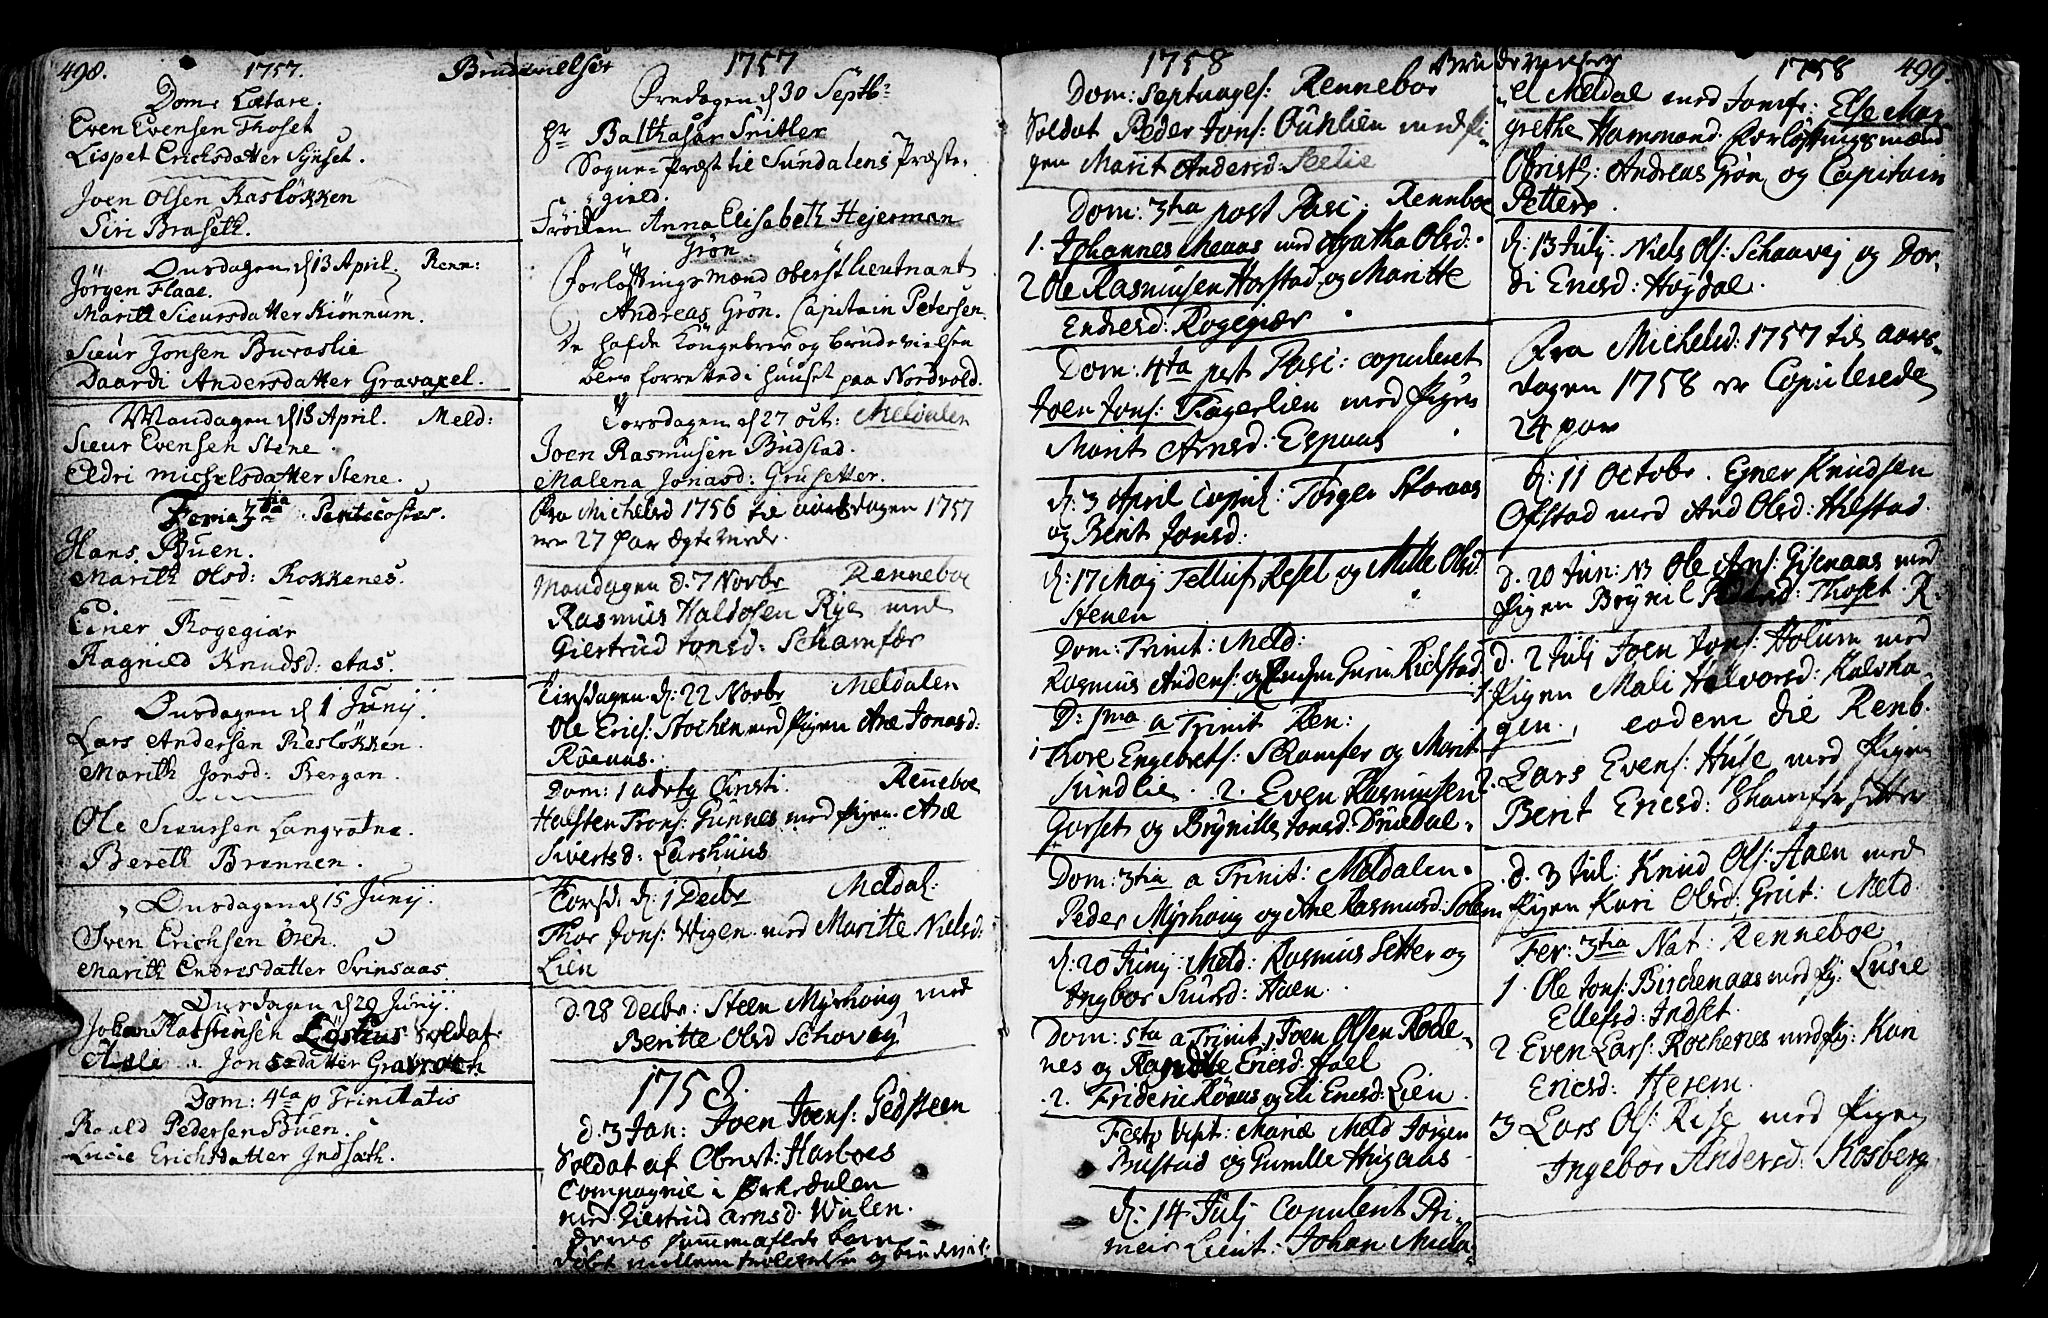 498. 1757. Brudevielser 1757
Dom: Lætare.
Even Evensen Thoset
Lispet Erichsdatter Synset.
Joen Olsen Rasløkken
Siri Braseth.
Onsdagen d 13 April. Renn:
Jörgen Flaae.
Marith Siursdatter Kiönnum.
Siur Jonsen Buraslie
Daardi Andersdatter Gravaxel.
Mandagen d 18 April. Meld:
Siur Evensen Stene.
Eldri Michelsdatter Stene.
Feria 3tia Pentecostes.
Hans Buen.
Marith Olsd: Rokkenes.
Einer Rogegiær
Ragnild Knudsd: Aas.
Onsdagen d 1 Junij.
Lars Andersen Resløkken.
Marith Jonsd: Bergan.
Ole Siurssen Langvatne.
Bereth Brønnen.
Onsdagen d 15 Junij.
Sven Erichsen Ören.
Marith Endresdatter Svinsaas.
Onsdagen d 29 Junij.
Johan Soldat
Jonsdatter
Dom: 4ta p Trinitatis
Roald Pedersen Buen.
Lucie Erichsdatter Indsæth.
Fredagen d 30 Septb:
Hr Balthasar Snitler
Sogne-Præst til Sundalens Præste-
gield.
Fröiken Anna Elisabeth Hejerman
Grön.
Forlöftnings Mænd Oberstlieutnant
Andreas Grön. Capitain Petersen.
De hafde Kongebrev og Brudevielsen
blev forretted i Huuset paa Nordvold.
Torsdagen d 27 Oct: Meldalen
Joen Rasmusen Budstad.
Malena Jonasd: Grusetter.
Fra Michelsd 1756 til aarsdagen 1757
ere 27 Par Ægteviede.
Mandagen d. 7 Novbr Renneboe
Rasmus Haldosen Rye med
Giertrud Jonsd: Schamfær
Tirsdagen d: 22 Novbr Meldalen
Ole Erics: Stochen med Pigen Ane Jonasd:
Röeaas.
Dom: 1 adv Christi. Renneboe
Halsten Trons: Gunnes med Pigen Ane
Sivertsd: Larshuus
Torsd. d: 1 Decbr Meldal:
Thor Jons: Wigen med Maritte Nielsd:
Lien
d. 28 Decbr: Steen Myrhoug med
Beritte Olsd Schovey
1758.
d. 3 Jan: Joen Joens: Gedsteen
Soldat af Obrist: Harboes
Compagnie i Ørkedalen
med Giertrud Arnsd: Wulen.
deres sammenaflede barn
döbt mellem trolovelse og brudeviels:
1758 Brudevielser 1758 499.
Dom: Septuages: Rennebor
Soldat Peder Jons: med Pi-
gen Marit Andersd: Seelie
Dom: 3tia post Pasc: Renneboe
1. Johannes Meaas med Agatha Olsd:
2 Ole Rasmusen Horstad og Maritte
Endresd: Rogegiær
Dom: 4ta post Pasc: copuleret
Joen Jons: Fagerlien med Pigen
Marit Arnsd: Espaas
d: 3 April Copul: Törger Storaas
og Berit Jonsd:
d: 17 Maj Telluf Resel og Mitte Olsd
Stenen
Dom: Trinit: Meld:
Rasmus Anders: og Guru Richstad
D: 1ma a Trinit Ren:
1 Thore Engebrets: Schamfer og Marit
Sundlie. 2. Even Rasmusen
Gorset og Brynille Jonsd: Druedal
Dom: 3tia a Trinit: Meldalen.
Peder Myrhoug og Ane Rasmusd: Solem
d: 20 Junij: Meld: Rasmus Setter og
Ingbor Siursd: Aaen.
Dom: 5ta a Trinit 1 Joen Olsen Rode-
nes og Ragnille Ericsd: Hoel
2. Frideric Röaas og Eli Ericsd: Lien.
Festo Visit: Mariæ Meld Jörgen
Bustad og Gunille Hugaas
d: 14 Julj Copuleret Pri-
meir Lieut: Johan Micha-
el Meldal med Jomfr: Else Mar-
grethe Hammond. Forlöftningsmænd
Obristl: Andreas Grön og Capitain
Petters.
d: 13 Julj: Niels Ols: Schaavej og Dor-
di Ericsd: Høydal.
Fra Michelsd: 1757 til aars-
dagen 1758 er Copulerede
24 par
d: 11 Octobr. Ejner Knudsen
Ofstad med And Olsd: Hilstad.
d. 20 Jun: NB Ole Ans: Gisnaas med
Pigen Brynil Thoset. R.
d. 2 Julj Joen Jons: Holum med
1. Pigen Mali Halvorsd: Kalvha-
gen, eodem die Renb.
2. Lars Evens: Huse med Pigen
Berit Ericsd: Skamfersetter
d. 3 Jul: Knud Ols: Aaen med
Pigen Kari Olsd: Grut: Meld.
Fer: 3tia Nat: Renneboe
1 Ole Jons: Birchenaas med Pig: Lusie
Ellefsd: Indset.
2 Even Lars: Rochenes med Pig: Kari
Ericsd: Herem.
3 Lars Ols: Rise med Pigen
Ingebor Andersd: Kosberg